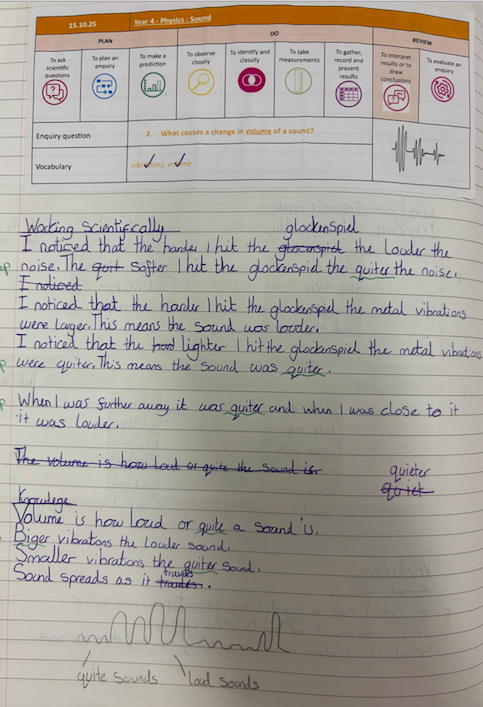 15.10.25 Year 4 - Physics : Sound
PLAN DO REVIEW
To ask scientific questions
To plan an enquiry
To make a prediction
To observe closely
To identify and classify
To take measurements
To gather, record and present results
To interpret results or to draw conclusions
To evaluate an enquiry
Enquiry question 2. What causes a change in volume of a sound?
Vocabulary vibrations, volume
Working Scientifically glockenspiel
I noticed that the harder I hit the the louder the
noise. The quit softer I hit the glockenspiel the quiter the noise.
I noticed
I noticed that the harder I hit the glockenspiel the metal vibrations
were larger. This means the sound was louder.
I noticed that the hard lighter I hit the glockenspiel the metal vibrations
were quiter. This means the sound was quiter.
When I was further away it was quiter and when I was close to it
it was louder.
The volume is how loud or quite the sound is.
quieter
quiet
Knowlege
Volume is how loud or quite a sound is.
Biger vibratons the louder sound.
Smaller vibratons the quiter sound.
Sound spreads as it travels.
quite sounds loud sounds